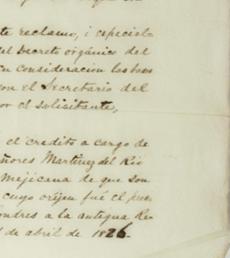 te reclamo, i especiola
del Decreto orgánico del
en consideracion las bases
con el Secretario del
por el solicitante,
el credito a cargo de
eñores Martinez del Rio
Mejicana de que son
cuyo oríjen fué el
ondres a la antigua Re
de abril de 1826.